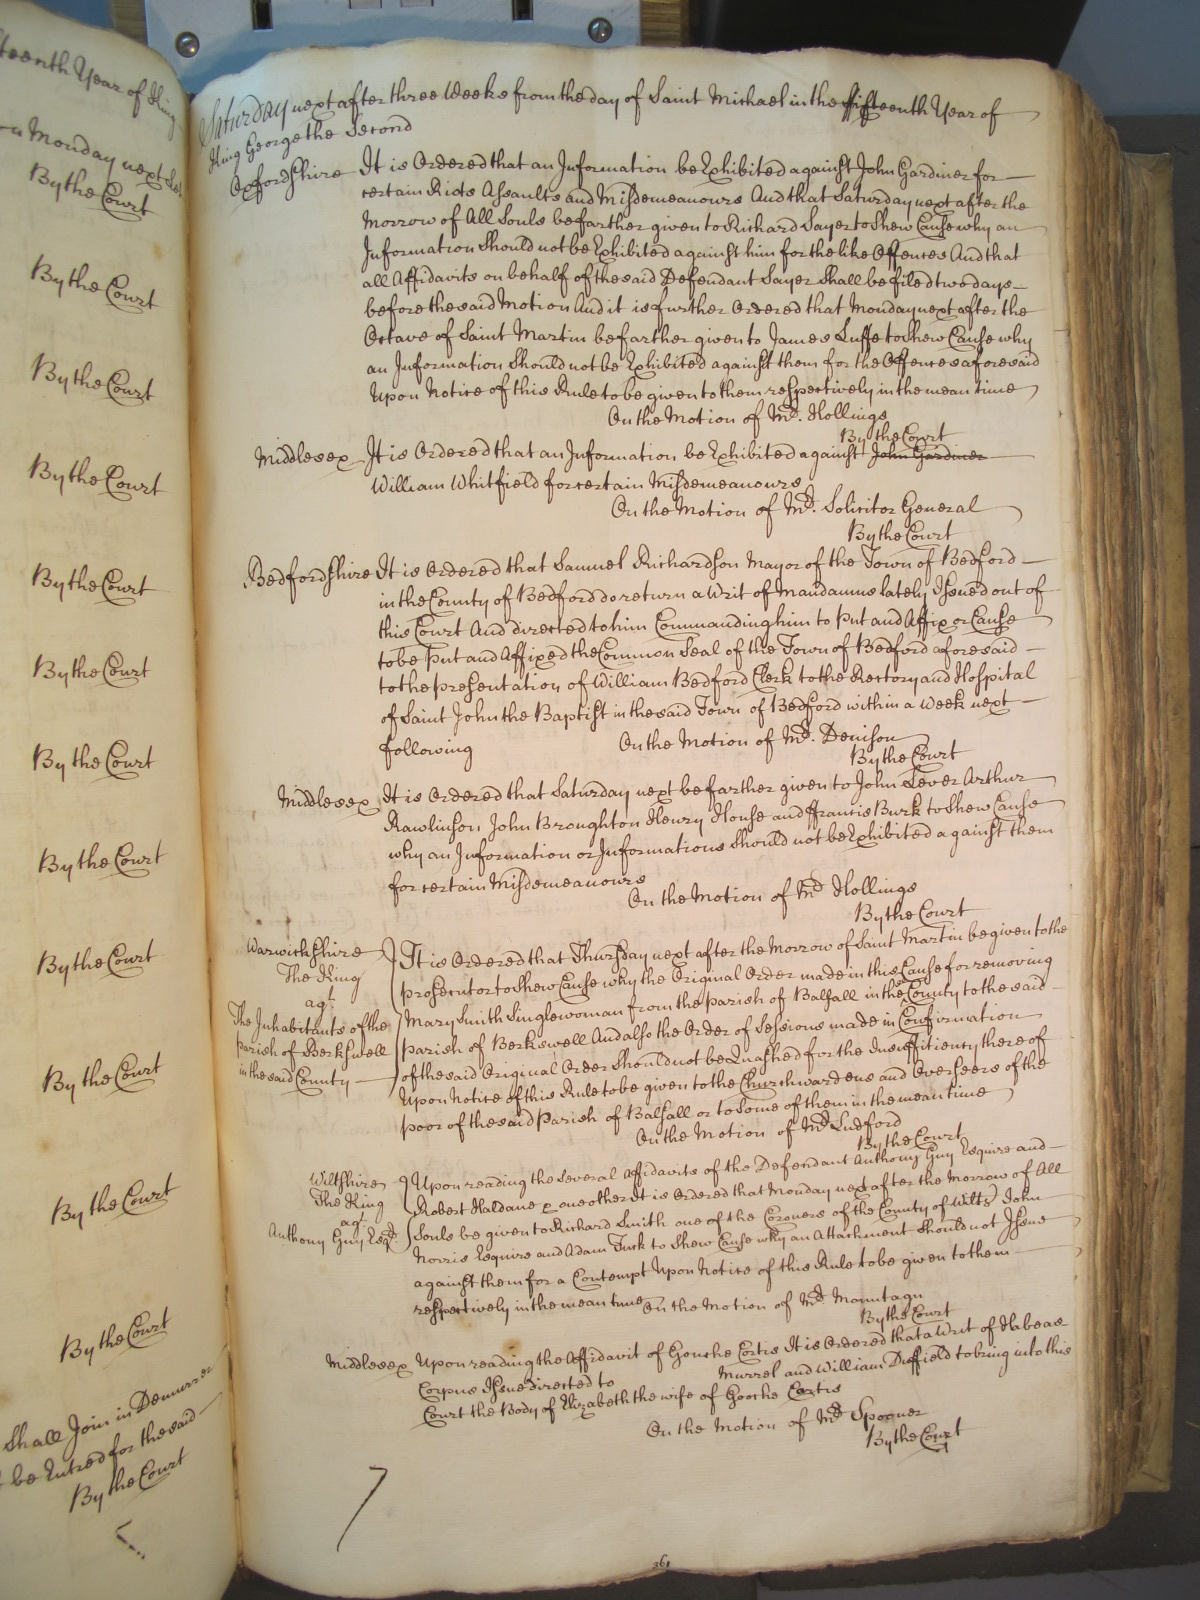 teenth Year of King
on Monday next
By the Court
By the Court
By the Court
By the Court
By the Court
By the Court
By the Court
By the Court
By the Court
By the Court
By the Court
By the Court
Shall Join in Demurrer
be Entred for the said
By the Court
Saturday next after three Weeks from the day of Saint Michael in the fifteenth Year of
King George the Second
Oxfordshire It is Ordered that an Information be Exhibited against John Gardiner for
certain Riots Assaults and Misdemeanours And that Saturday next after the
Morrow of All Souls be farther given to Richard Sayer to Shew Cause why an
Information Should not be Exhibited against him for the like Offences And that
all Affidavits on behalf of the said Defendant Sayer Shall be filed two days
before the said Motion And it is further Ordered that Monday next after the
Octave of Saint Martin be farther given to James Luffe to Shew Cause why
an Information Should not be Exhibited against them for the Offences aforesaid
Upon Notice of this Rule to be given to them respectively in the mean time
On the Motion of Mr. Hollings
By the Court
Middlesex It is Ordered that an Information be Exhibited against John Gardiner
William Whitfield for certain Misdemeanours
On the Motion of Mr. Solicitor General
By the Court
Bedfordshire It is Ordered that Samuel Richardson Mayor of the Town of Bedford
in the County of Bedford do return a Writ of Mandamus lately Issued out of
this Court And directed to him Commanding him to Put and Affix or Cause
to be Put and Affixed the Common Seal of the Town of Bedford aforesaid
to the presentation of William Bedford Clerk to the Rectory and Hospital
of Saint John the Baptist in the said Town of Bedford within a Week next
following On the Motion of Mr. Denison
By the Court
Middlesex It is Ordered that Saturday next be farther given to John Lever Arthur
Rawlinson John Broughton Henry House and ffrancis Burk to Shew Cause
why an Information or Informations Should not be Exhibited against them
for certain Misdemeanours
On the Motion of Mr Hollings
By the Court
Warwickshire
The King
agt.
The Inhabitants of the
parish of Berkswell
in the said County
It is Ordered that Thursday next after the Morrow of Saint Martin be given to the
prosecutor to Shew Cause why the Original Order made in this Cause for removing
Mary Smith Singlewoman from the parish of Balsall in the sd County to the said
parish of Berkswell And also the Order of Sessions made in Confirmation
of the said Original Order Should not be Quashed for the Insufficiency thereof
Upon Notice of this Rule to be given to the Churchwardens and Overseers of the
poor of the said Parish of Balsall or to Some of them in the mean time
On the Motion of Mr Ludford
By the Court
Wiltshire
The King
agt
Anthony Guy Esqr.
Upon reading the Several Affidavits of the Defendant Anthony Guy Esquire and
Robert Haldane & one other It is Ordered that Monday next after the Morrow of All
Souls be given to Richard Smith one of the Coroners of the County of Wilts John
Norris Esquire and Adam Tuck to Shew Cause why an Attachment Should not Issue
against them for a Contempt Upon Notice of this Rule to be given to them
respectively in the mean time On the Motion of Mr Mountagu
By the Court
Middlesex Upon reading the Affidavit of Gouche Certis It is Ordered that a Writ of Habeas
Corpus Issue directed to Murrel and William Duffield to bring into this
Court the Body of Elizabeth the wife of Gooche Certis
On the Motion of Mr Spooner
By the Court
361